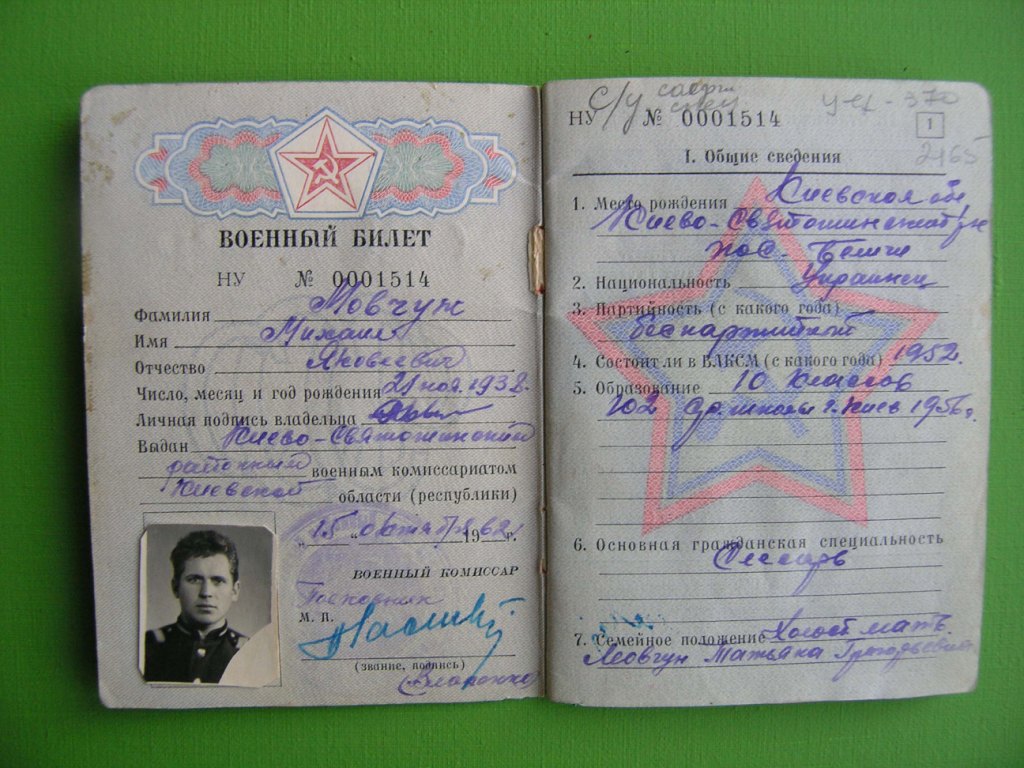 ВОЕННЫЙ БИЛЕТ
НУ № 0001514
Фамилия Мовчун
Имя Михаил
Отчество Яковлевич
Число, месяц и год рождения 21 ноя. 1938.
Личная подпись владельца
Выдан Киево-Святошинский
районным военным комиссариатом
Киевской области (республики)
"15" октября 1962 г.
ВОЕННЫЙ КОМИССАР
М. П.
(звание, подпись)
НУ № 0001514
с/у
уд-370
1
2165
I. Общие сведения
1. Место рождения Киевская обл
Киево-Святошинский р-н
пос.
2. Национальность Украинец
3. Партийность (с какого года)
беспартийный
4. Состоит ли в ВЛКСМ (с какого года) 1952.
5. Образование 10 классов
102 ср. школы г. Киев 1956г.
6. Основная гражданская специальность
Слесарь
7. Семейное положение Холост мать
Мовчун Татьяна Григорьевна